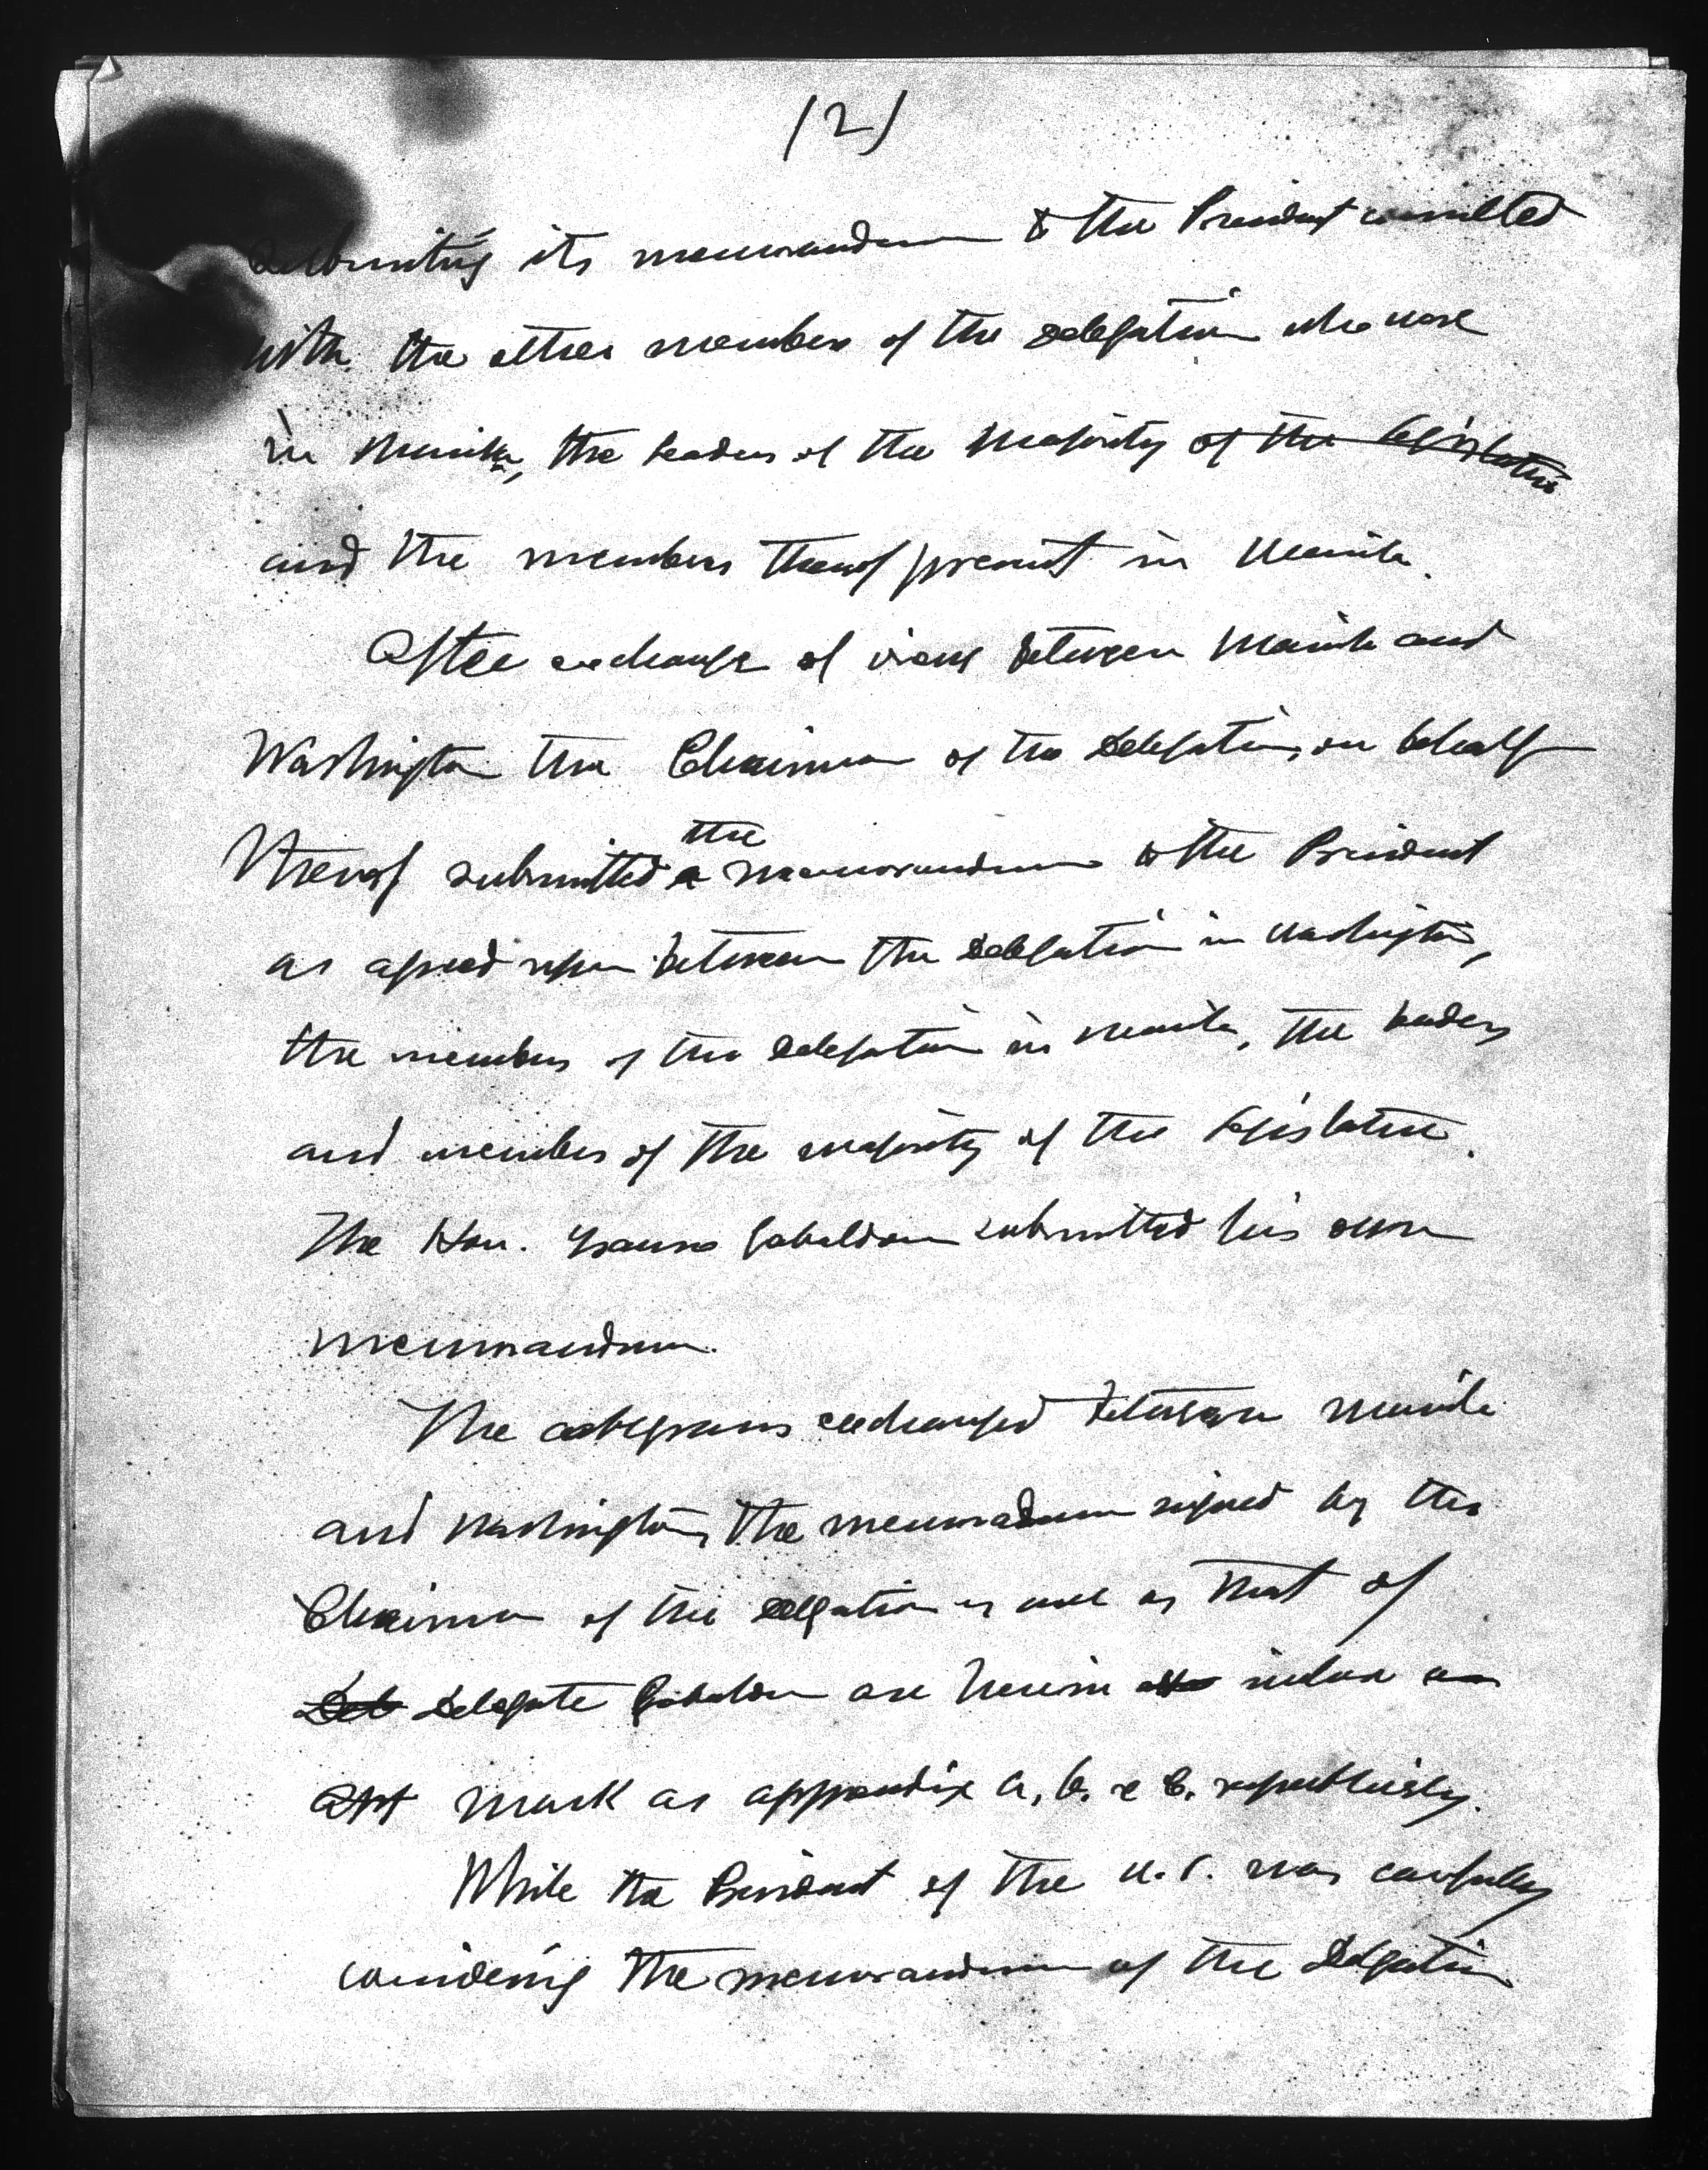 (2)
submitting its memorandum to the President consulted
with the other members of the delegation who were
in Manila, the leaders of the Majority of the Legislature
and the members thereof present in Manila.
After exchange of views between Manila and
Washington the Chairman of the Delegation, on behalf
thereof submitted a the memorandum to the President
as agreed upon between the Delegation in Washington,
the members of the Delegation in Manila, the leaders
and members of the majority of the Legislature.
The Hon. Ysauro Gabaldon submitted his own
memorandum.
The cablegrams exchanged between Manila
and Washington, the memoradum signed by the
Chairman of the Delegation as well as that of
Del Delegate Gabaldon are herein inclose as
app mark as appendix A, B. & C. respectively.
While the President of the U.S. was carefully
considering the memorandum of the Delgation